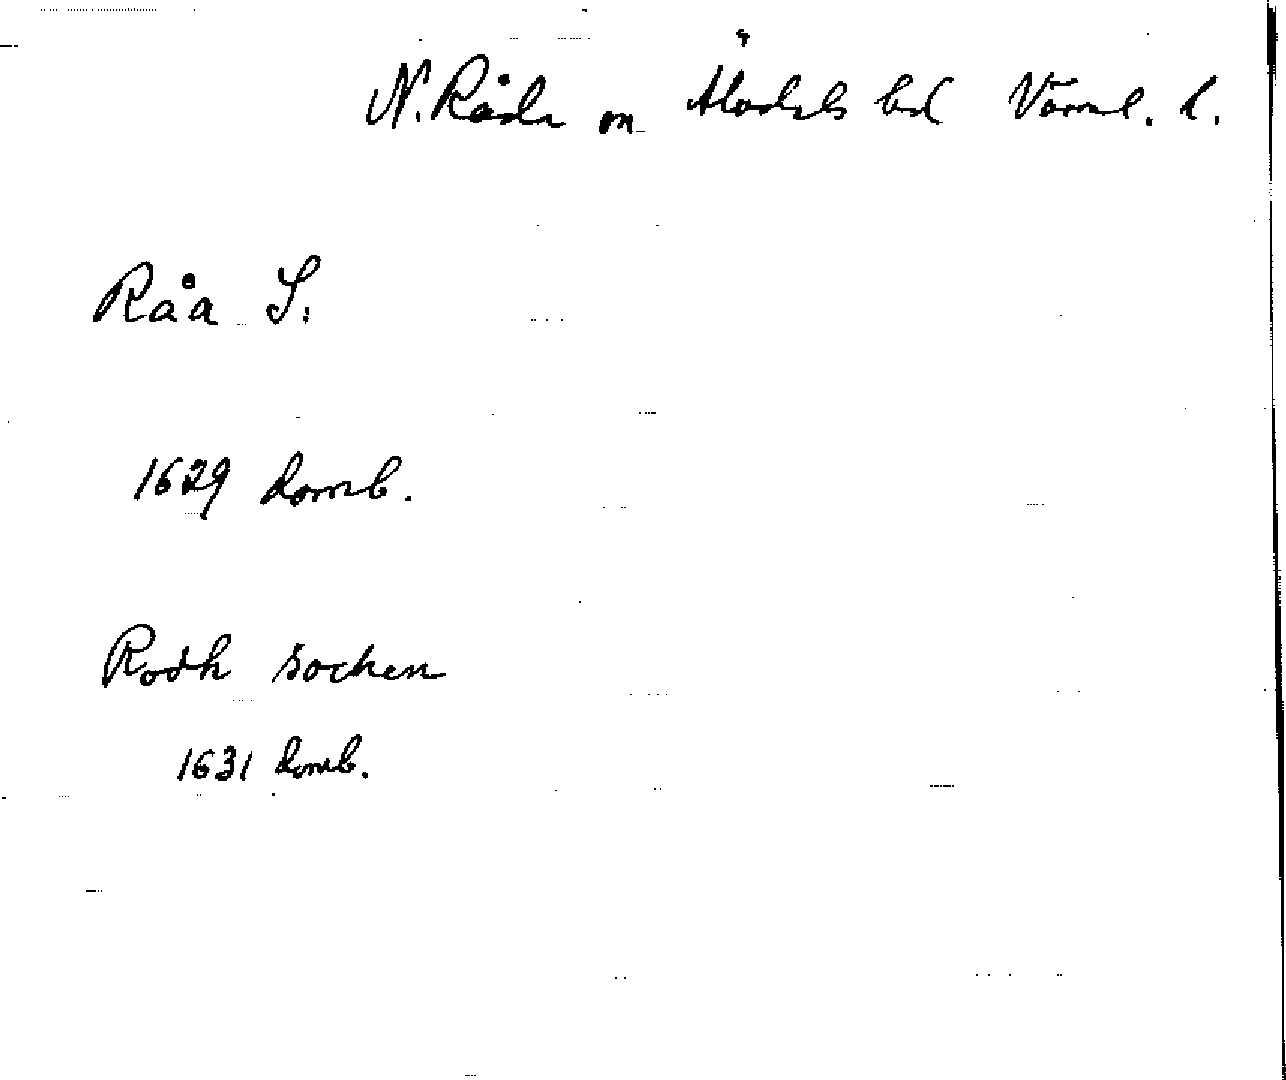 N. Råda sn Älvdals hd Värml. l.
Råa S.
1629 Domb.
Rodh sochen
1631 Domb.